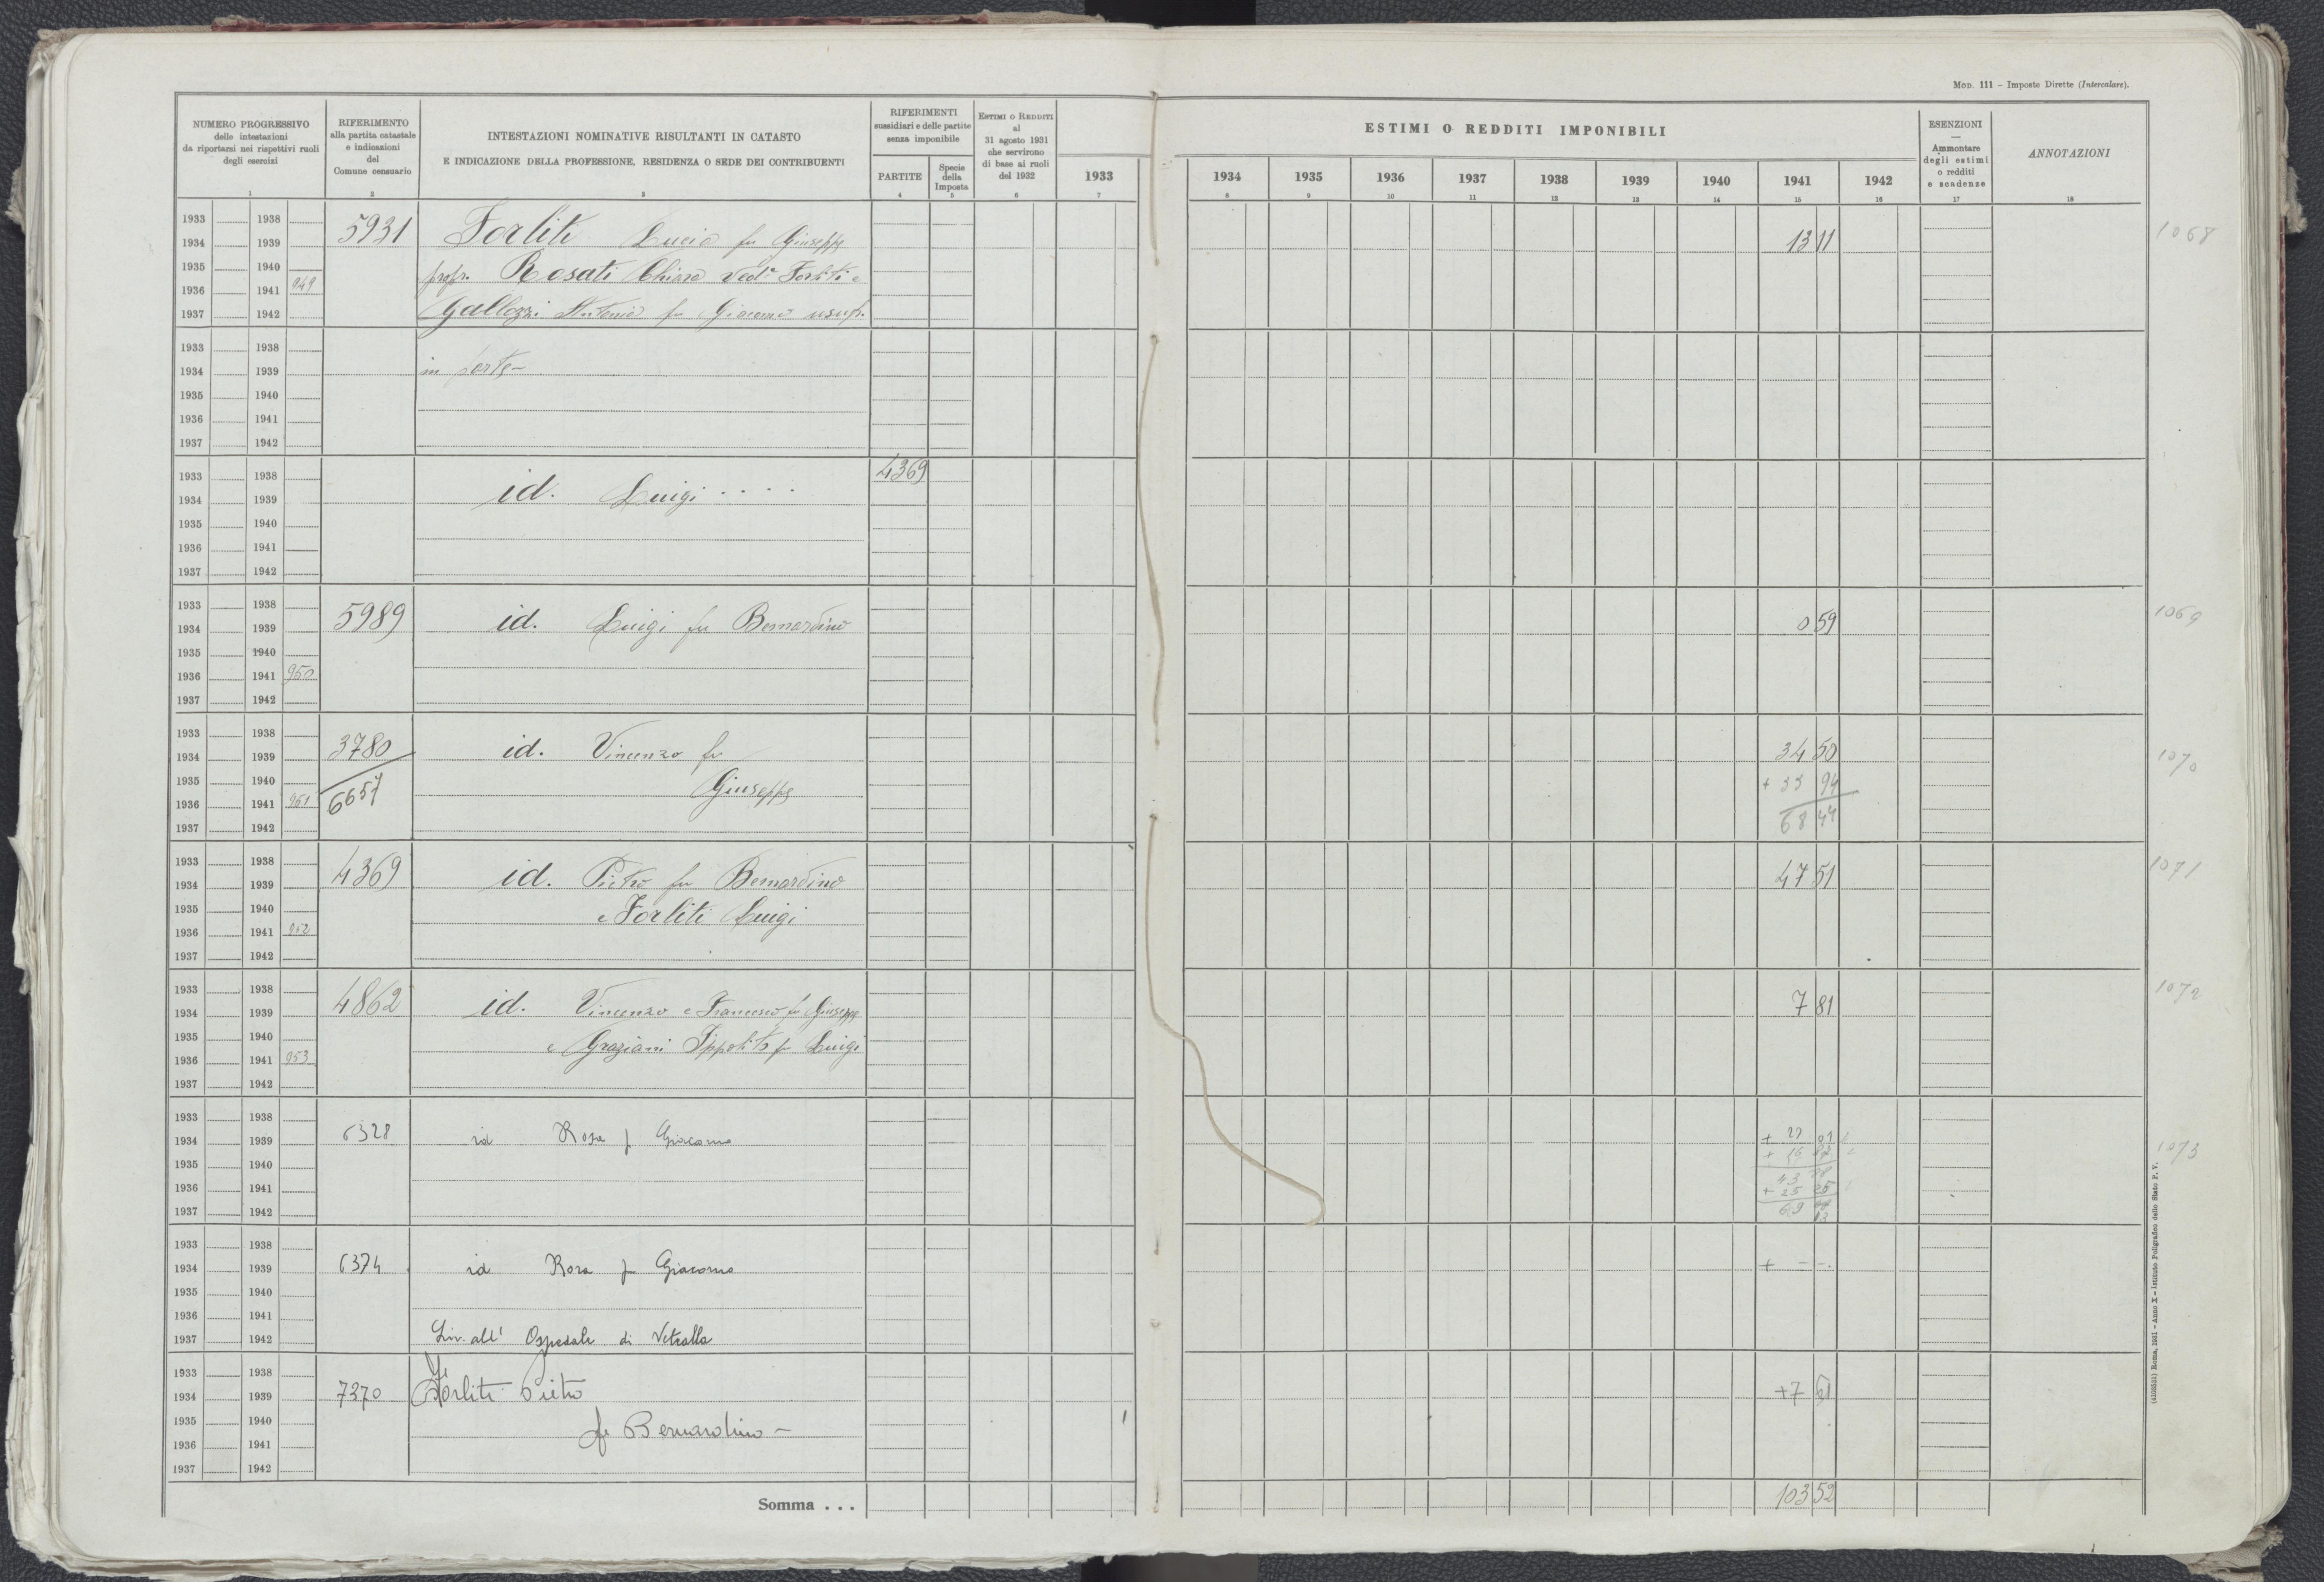 MOD. 111 – Imposte Dirette (Intercalare).
NUMERO PROGRESSIVO
delle intestazioni
da riportarsi nei rispettivi ruoli
degli esercizi
1
RIFERIMENTO
alla partita catastale
e indicazioni
del
Comune censuario
2
INTESTAZIONI NOMINATIVE RISULTANTI IN CATASTO
E INDICAZIONE DELLA PROFESSIONE, RESIDENZA O SEDE DEI CONTRIBUENTI
3
RIFERIMENTI
sussidiari e delle partite
senza imponibile
PARTITE
4
Specie
della
Imposta
5
ESTIMI O REDDITI
al
31 agosto 1931
che servirono
di base ai ruoli
del 1932
6
ESTIMI O REDDITI IMPONIBILI
1933 1934 1935 1936 1937 1938 1939 1940 1941 1942
7 8 9 10 11 12 13 14 15 16
ESENZIONI
—
Ammontare
degli estimi
o redditi
e scadenze
17
ANNOTAZIONI
18
1933 1938
1934 1939 5931 Forliti Lucia fu Giuseppe 13 11 1068
1935 1940 propr. Rosati Chiara ved. Forliti e
1936 1941 949
1937 1942 Gallozzi Antonio fu Giacomo usufr.
1933 1938
1934 1939 in parte –
1935 1940
1936 1941
1937 1942
1933 1938 4369
1934 1939 id. Luigi . . . .
1935 1940
1936 1941
1937 1942
1933 1938
1934 1939 5989 id. Luigi fu Bernardino 0 59 1069
1935 1940
1936 1941 950
1937 1942
1933 1938
1934 1939 3780 id. Vincenzo fu 34 50 1070
1935 1940 6657 Giuseppe + 33 94
1936 1941 951
1937 1942 68 44
1933 1938
1934 1939 4369 id. Pietro fu Bernardino 47 51 1071
1935 1940 e Forliti Luigi
1936 1941 952
1937 1942
1933 1938
1934 1939 4862 id. Vincenzo e Francesco fu Giuseppe 7 81 1072
1935 1940 e Graziani Ippolito fu Luigi
1936 1941 953
1937 1942
1933 1938
1934 1939 6328 id Rosa fu Giacomo 1073
1935 1940
1936 1941 + 25 25
1937 1942 69 13
1933 1938
1934 1939 6374 id Rosa fu Giacomo + – –.
1935 1940
1936 1941
1937 1942 Liv. all' Ospedale di Vetralla
1933 1938
1934 1939 7370 Forliti Pietro +7 61
1935 1940 fu Bernardino –
1936 1941
1937 1942
Somma . . . 103 52
(4100531) Roma, 1931 – Anno X – Istituto Poligrafico dello Stato P. V.